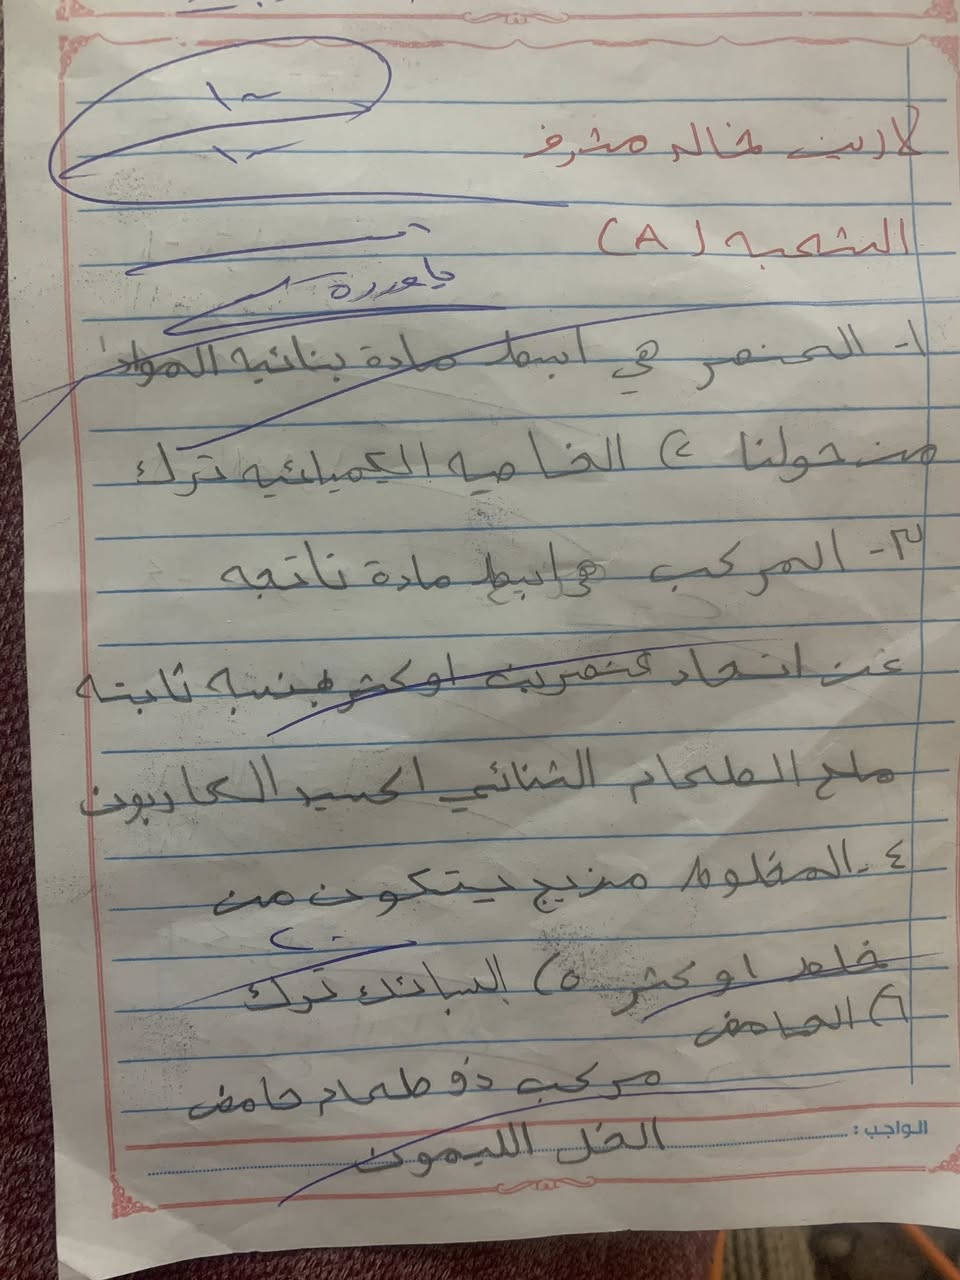 ١٠
١٠
لارين خالد مشرف
الشعبه (A)
١- العنصر هي ابسط مادة بنائيه المواد
من حولنا ٢) الخاصيه الكيميائيه ترك
٣- المركب هي ابسط مادة ناتجه
عن اتحاد عنصرين او كثر بنسبه ثابته
ملح الطعام الثنائي اكسيد الكاربون
٤- المخلوط مزيج يتكون من
خلط او كثر ٥) السائله ترك
٦) الحامض
مركب ذو طعام حامض
الخل الليمون
الواجب: